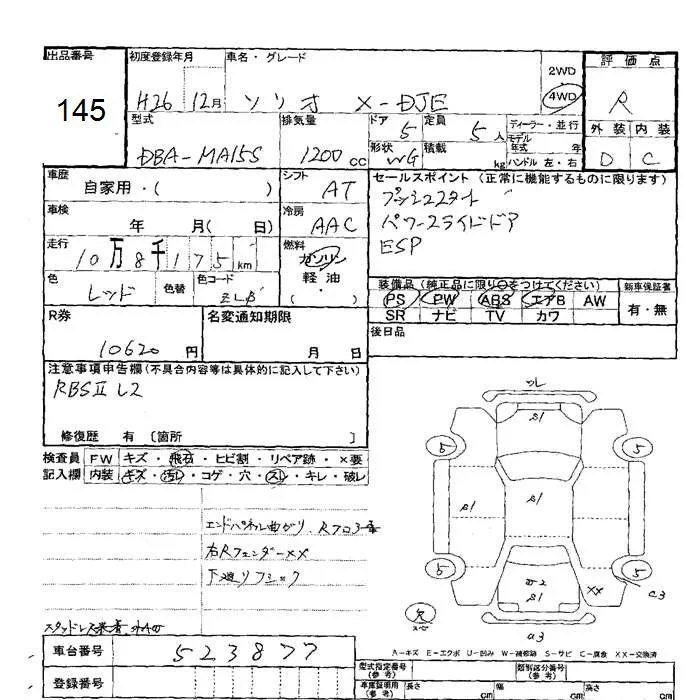 出品番号
145
初度登録年月
H26 12月
車名・グレード
ソリオ X-DJE
2WD
4WD
評価点
R
外装 内装
D C
型式
DBA-MA15S
排気量
1200 cc
ドア
5
定員
5 人
形状
WG
積載
kg
ディーラー・並行
モデル年式 年
ハンドル 左・右
車歴
自家用・( )
シフト
AT
車検
年 月( 日)
冷房
AAC
走行
10万8千175 km
燃料
ガソリン
軽油
( )
色
レッド
色替
色コード
R券
10620 円
名変通知期限
月 日
セールスポイント(正常に機能するものに限ります)
プッシュスタート
パワースライドドア
ESP
装備品(純正品に限り○をつけてください)
PS PW ABS エアB AW
SR ナビ TV カワ
新車保証書
有・無
後日品
注意事項申告欄(不具合内容等は具体的に記入して下さい)
RBSⅡ L2
修復歴 有 〔箇所 〕
検査員 FW キズ・飛石・ヒビ割・リペア跡・×要
記入欄 内装 キズ・汚レ・コゲ・穴・スレ・キレ・破レ
エンドパネル曲がり
右Rフェンダー××
下廻りフック
車台番号
523877
登録番号
A-キズ E-エクボ U-凹み W-補修跡 S-サビ C-腐食 XX-交換済
型式指定番号
(参考)
類別区分番号
(参考)
車庫証明用
(参考)
長さ cm
幅 cm
高さ cm
5
5
A1
A1
A1
A1
5
5
XX
a3